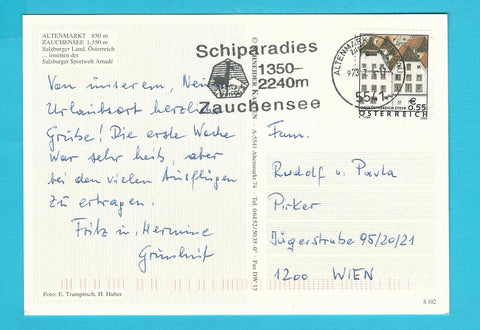 ALTENMARKT 850 m
ZAUCHENSEE 1.350 m
Salzburger Land, Österreich
... inmitten der
Salzburger Sportwelt Amadé
Schiparadies
1350-
2240m
Zauchensee
ALTENMARKT
5541
€ 0.55
ÖSTERREICH
Von unserem, Nein
Urlaubsort herzliche
Grüße! Die erste Woche
war sehr heiß, aber
bei den vielen Ausflügen
zu ertragen.
Fritz u. Hermine
Grünhut
Fam.
Rudolf u. Paula
Pirker
Jägerstraße 95/20/21
1200 WIEN
A-5541 Altenmarkt 74
Foto: E. Trampitsch, H. Huber
S 102